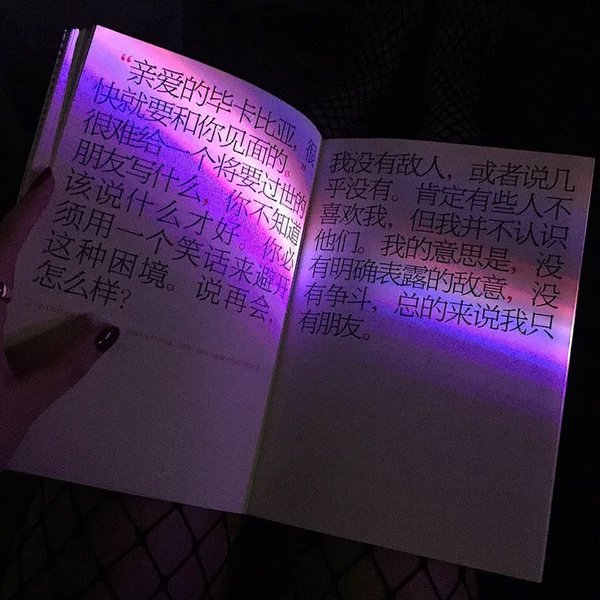 “亲爱的毕卡比亚，很
快就要和你见面的。
很难给一个将要过世的
朋友写什么，你不知道
该说什么才好。你必
须用一个笑话来避开
这种困境。说再会，
怎么样？
我没有敌人，或者说几
乎没有。肯定有些人不
喜欢我，但我并不认识
他们。我的意思是，没
有明确表露的敌意，没
有争斗，总的来说我只
有朋友。